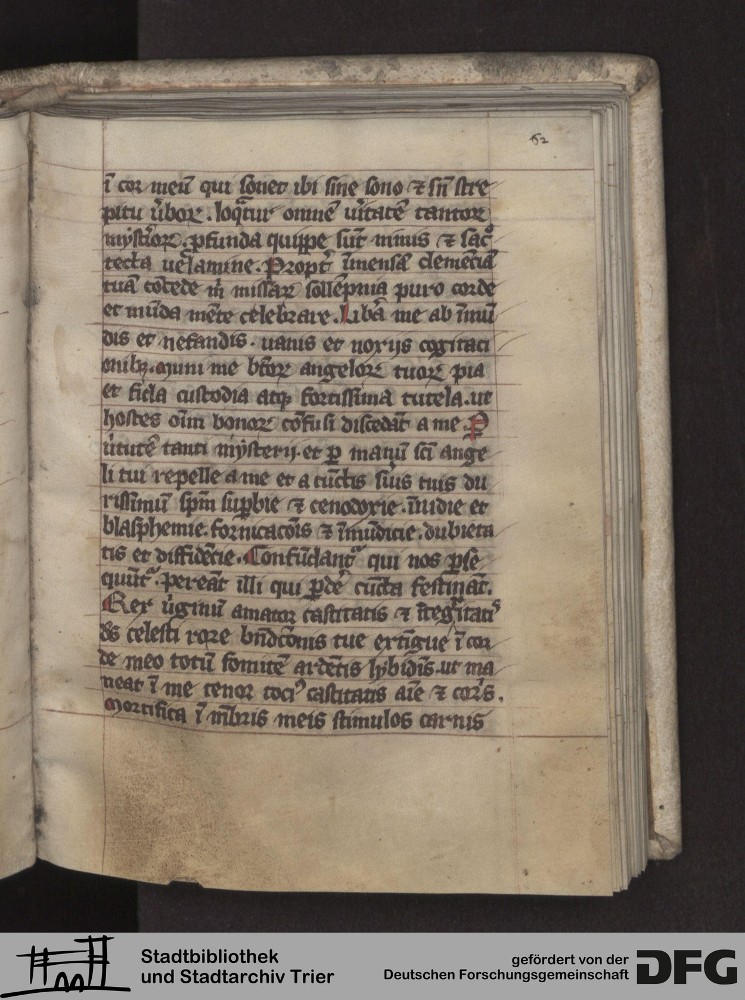 62
ī cor meū qui sonet ibi sine sono ⁊ sn̄ stre
pitu ūboꝝ. loqͣtur omnē ūitatē tantoꝝ
mysťioꝝ. ꝓfunda quippe sūt nimis ⁊ sacͦ
tecta uelamine. Propť īmensā clemēciā
tuā cōcede m̄ missaꝝ sollēpnia puro corde
et mūda mēte celebrare. Libā me ab īmū
dis et nefandis. uanis et noxijs cogitaci
onibꝫ. muni me bt̄oꝝ angeloꝝ tuoꝝ pia
et fida custodia atqꝫ fortissima tutela. ut
hostes oīm bonoꝝ cōfusi discedāt a me. ꝑ
ūtutē tanti mysterij. et ꝑ manū sc̄i ange
li tui repelle a me et a cūctis s̄uis tuis du
rissimū sp̄m suꝑbie ⁊ cenodoxie. īuidie et
blasphemie. fornicacōis ⁊ īmūdicie. dubieta
tis et diffidētie. Confūdantͬ qui nos ꝑse
quūtͬ. pereāt illi qui ꝑdē cūcta festināt.
Rex ūginū amator castitatis ⁊ ītegͥtatꝭ
ds̄ celesti rore bn̄dcōnis tue extīgue ī cor
de meo totū fomitē ardētis libidīs. ut ma
neat ī me tenor tociꝰ castitatis aīe ⁊ corꝑs.
Mortifica ī mēbris meis stimulos carnis
Stadtbibliothek
und Stadtarchiv Trier
gefördert von der
Deutschen Forschungsgemeinschaft
DFG